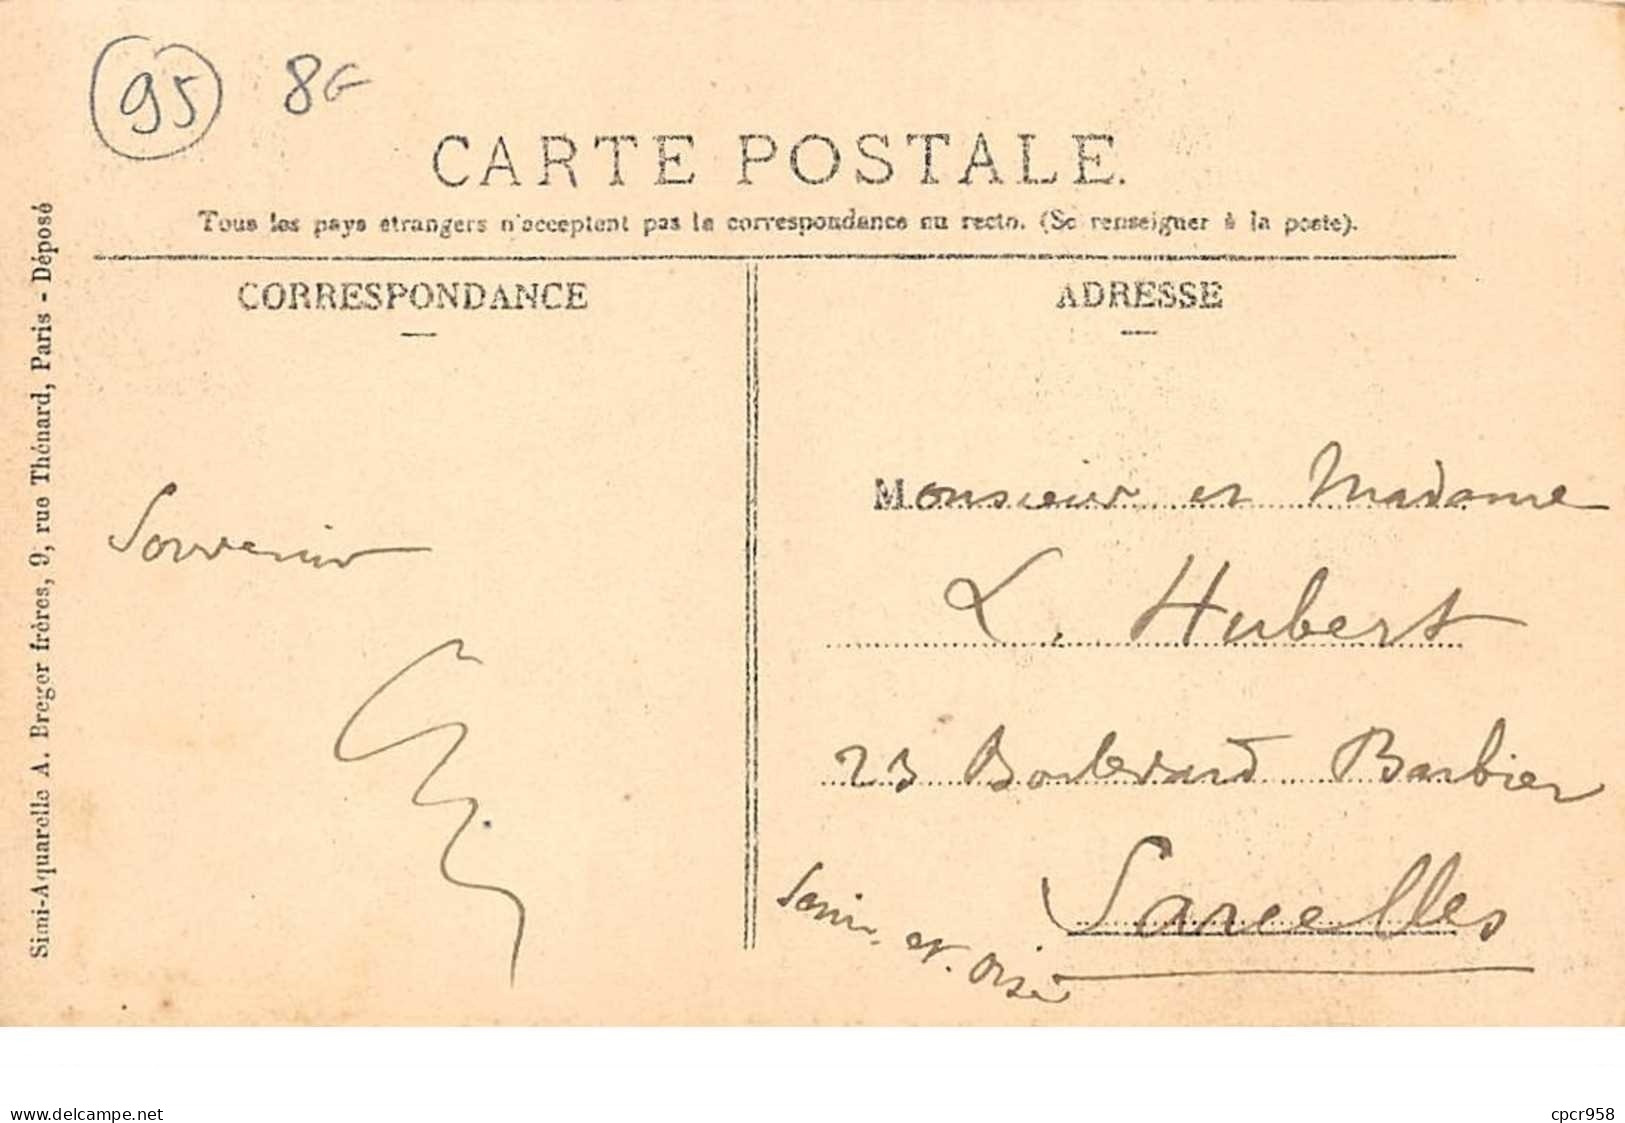 95 8€
CARTE POSTALE.
Tous les pays étrangers n'acceptent pas la correspondance au recto. (Se renseigner à la poste).
CORRESPONDANCE
ADRESSE
Souvenir
Monsieur et Madame
L. Hubert
23 Boulevard Barbier
Sarcelles
Seine et Oise
Simi-Aquarelle A. Breger frères, 9, rue Thénard, Paris - Déposé
www.delcampe.net
cpcr958